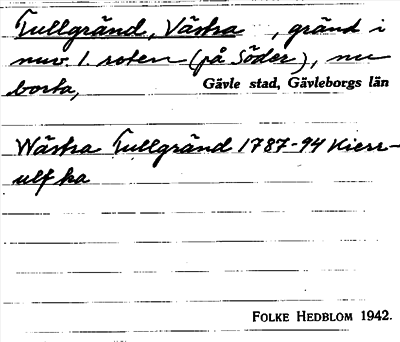 Tullgränd, Västra, gränd i
nuv. 1. roten (på Söder), nu
borta,
Gävle stad, Gävleborgs län
Wästra Tullgränd 1787-94 Kierr-
ulf ka
FOLKE HEDBLOM 1942.